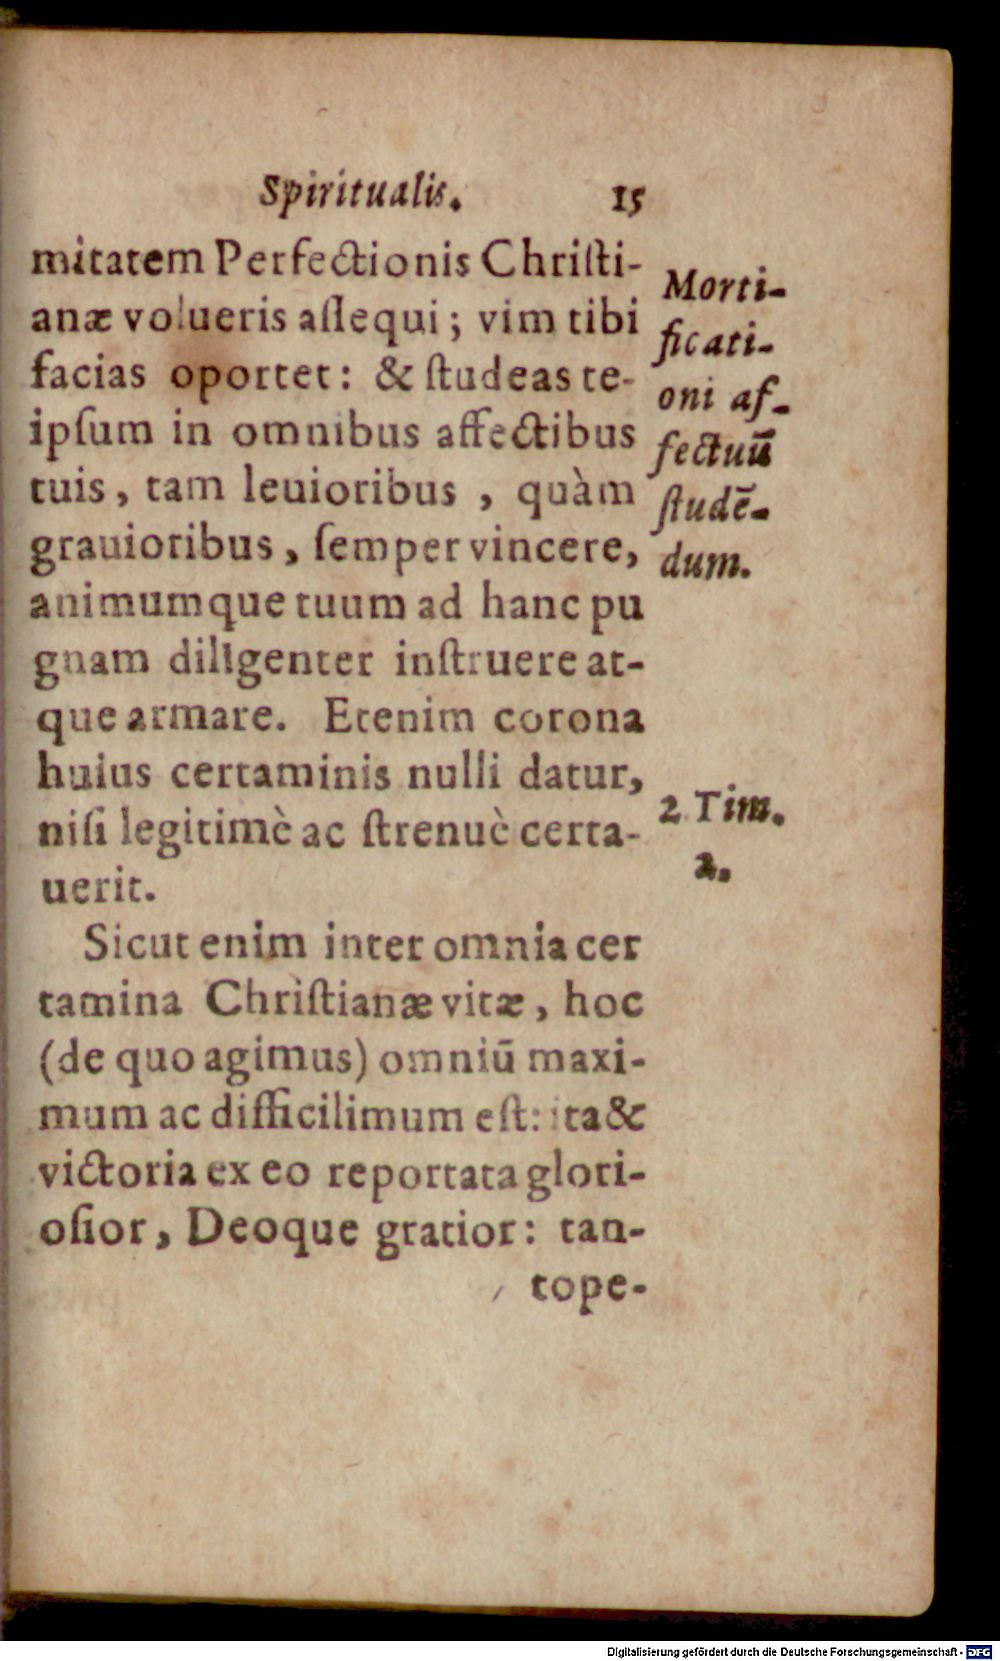 Spiritualis. 15
mitatem Perfectionis Chriſti-
anæ volueris aſſequi; vim tibi
facias oportet: & ſtudeas te-
ipſum in omnibus affectibus
tuis, tam leuioribus, quàm
grauioribus, ſemper vincere,
animumque tuum ad hanc pu
gnam diligenter inſtruere at-
que armare. Etenim corona
huius certaminis nulli datur,
niſi legitimè ac ſtrenuè certa-
uerit.
Sicut enim inter omnia cer
tamina Chriſtianæ vitæ, hoc
(de quo agimus) omniū maxi-
mum ac difficilimum eſt: ita &
victoria ex eo reportata glori-
oſior, Deoque gratior: tan-
tope-
Morti-
ficati-
oni af-
fectuū
ſtudē-
dum.
2. Tim.
2.
Digitalisierung gefördert durch die Deutsche Forschungsgemeinschaft - DFG